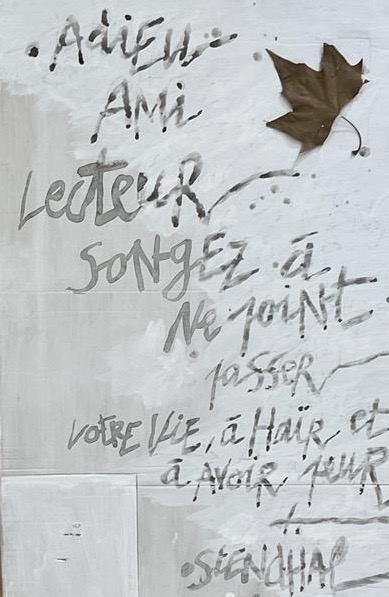 Adieu
Ami
Lecteur
Songez à
Ne point
passer
votre vie, à Haïr et
à avoir peur
Stendhal